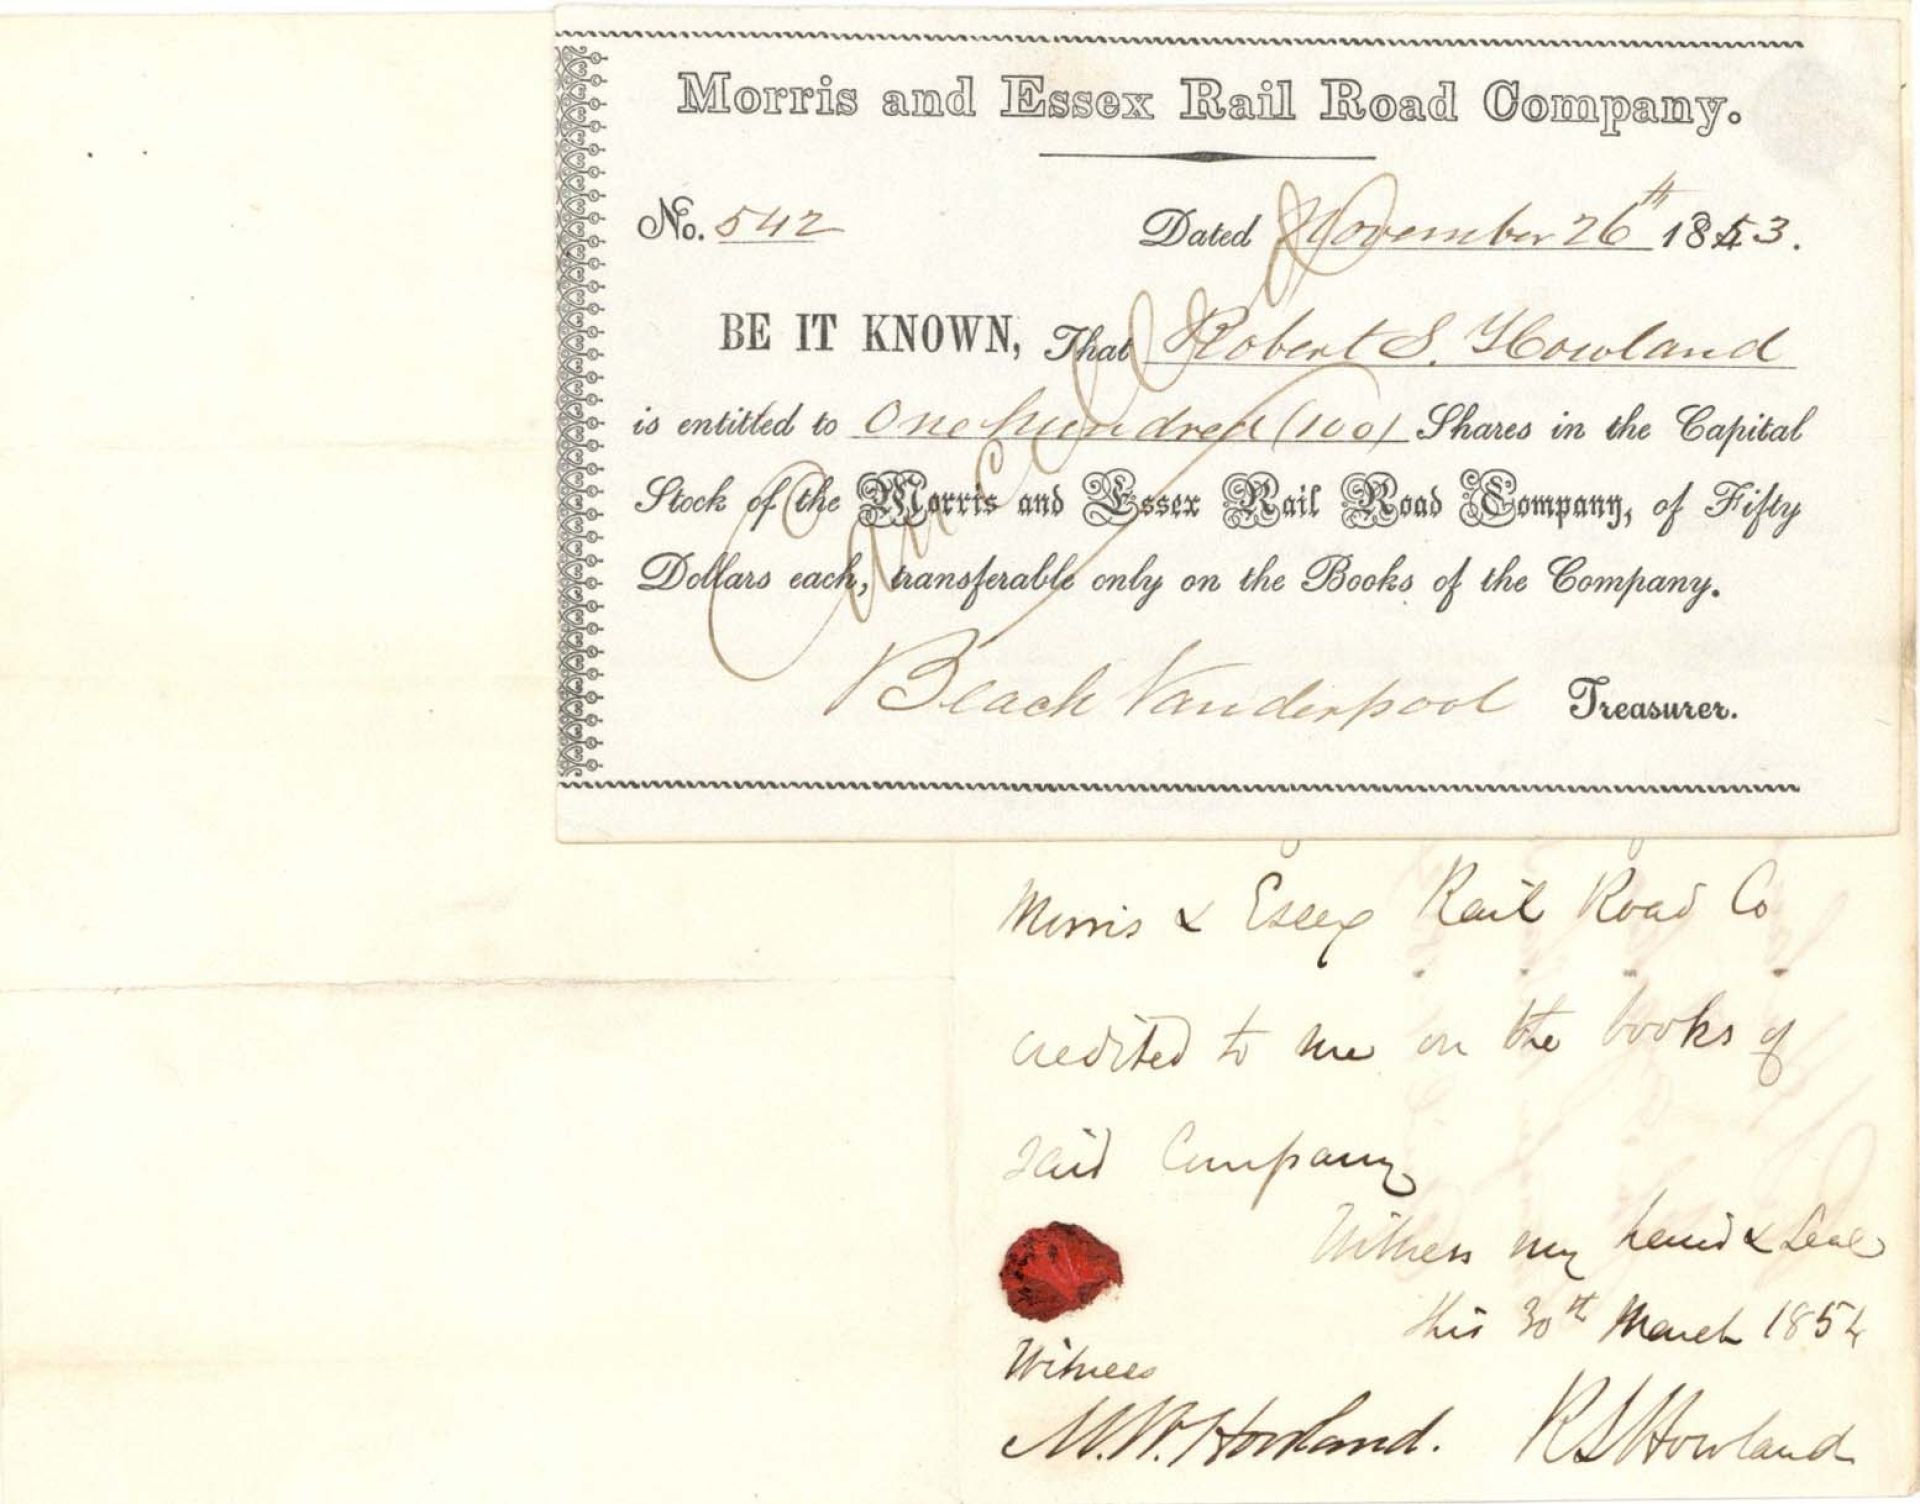 Morris and Essex Rail Road Company.
No. 542 Dated November 26th 1853.
BE IT KNOWN, That Robert S. Howland
is entitled to One hundred (100) Shares in the Capital
Stock of the Morris and Essex Rail Road Company, of Fifty
Dollars each, transferable only on the Books of the Company.
Cancelled
Beach Vanderpool Treasurer.
Morris & Essex Rail Road Co
credited to me on the books of
said Company
Witness my hand & Seal
this 30th March 1854
Witness
M. W. Howland. R S Howland